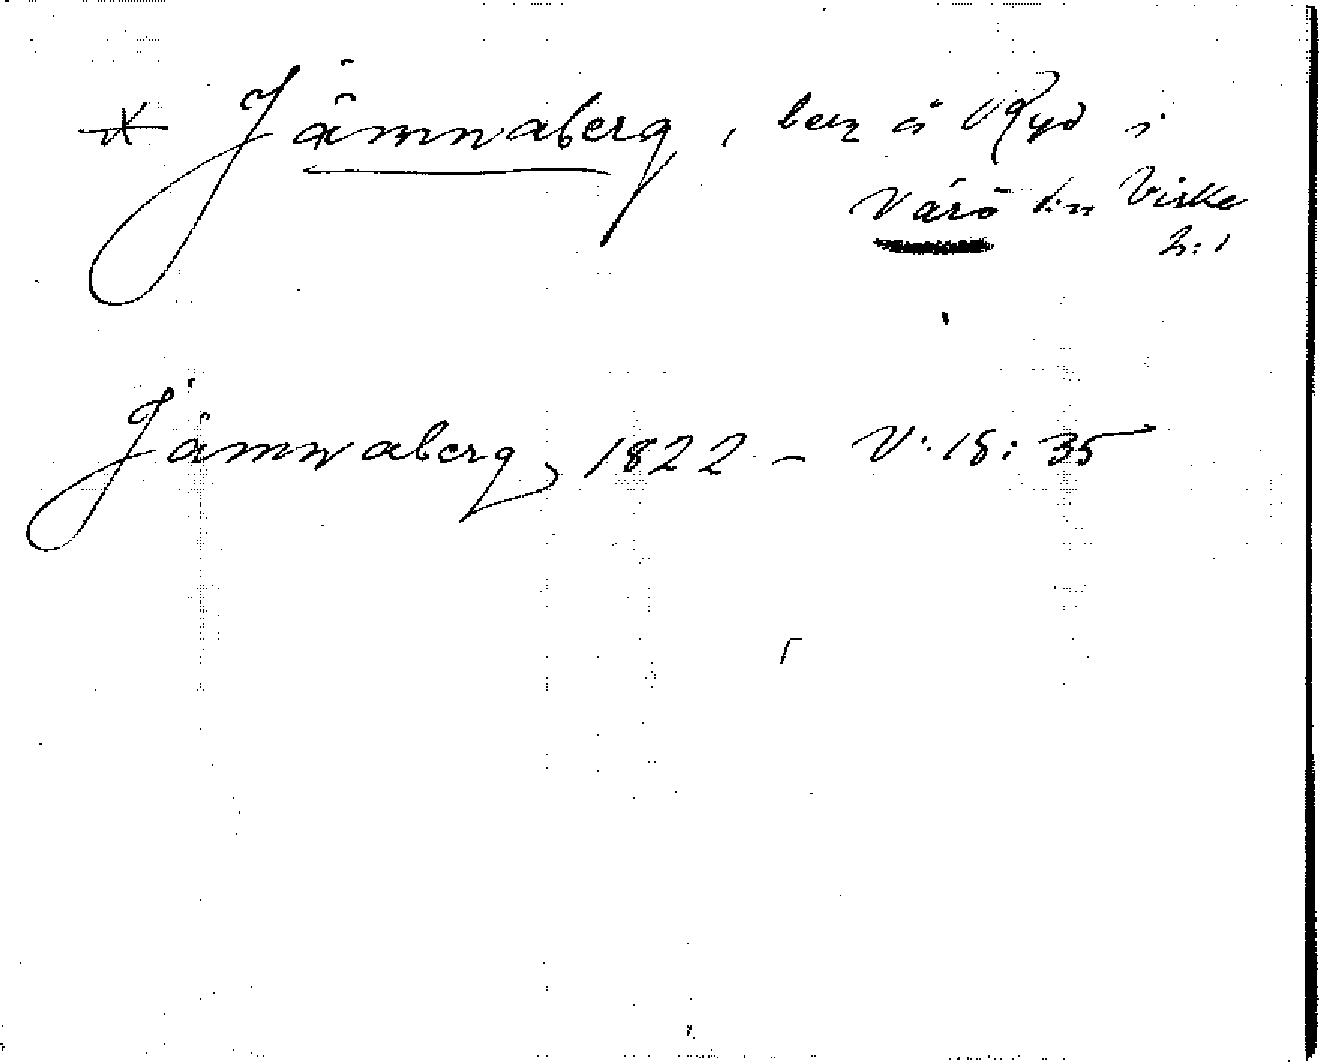 * Jämnaberg, berg å Ryd i
Värö sn Viske
h:d
Jämnaberg 1822 – V:18:35